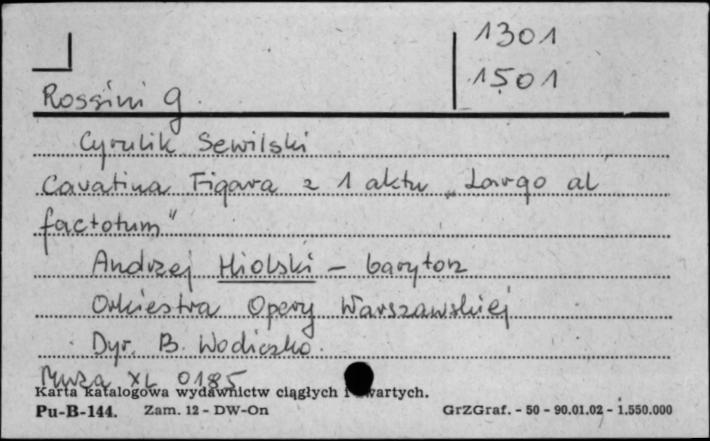 1301
1501
Rossini G.
Cyrulik Sewilski
Cavatina Figara z 1 aktu „Largo al
factotum"
Andrzej Hiolski – baryton
Orkiestra Opery Warszawskiej
Dyr. B. Wodiczko.
Muza XL 0185
Karta katalogowa wydawnictw ciągłych i zwartych.
Pu-B-144. Zam. 12 - DW-On GrZGraf. - 50 - 90.01.02 - 1.550.000